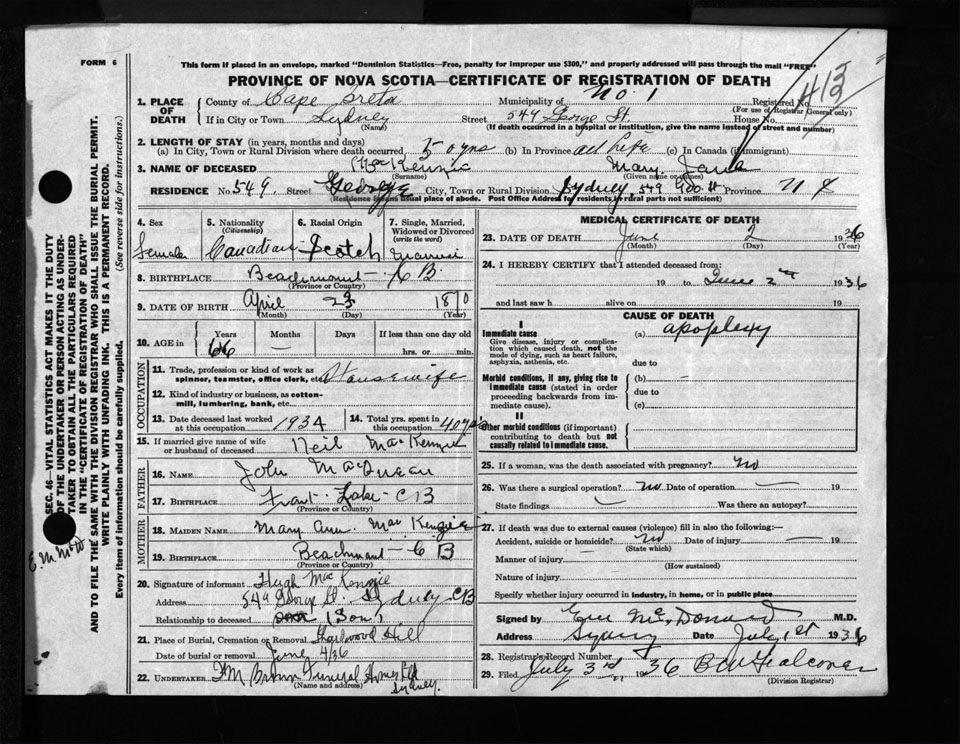 FORM 6
This form if placed in an envelope, marked "Dominion Statistics—Free, penalty for improper use $300," and properly addressed will pass through the mail "FREE"
PROVINCE OF NOVA SCOTIA—CERTIFICATE OF REGISTRATION OF DEATH
413
1. PLACE OF DEATH County of Cape Breton Municipality of No. 1 Registered No.
(For use of Registrar General only)
If in City or Town Sydney Street 549 George St. House No.
(Name) (If death occurred in a hospital or institution, give the name instead of street and number)
2. LENGTH OF STAY (in years, months and days)
(a) In City, Town or Rural Division where death occurred 50 yrs (b) In Province all life (c) In Canada (if immigrant)
3. NAME OF DECEASED MacKenzie Mary Jane
(Surname) (Given name or names)
RESIDENCE No. 549 Street George City, Town or Rural Division Sydney, 549 Geo. St Province N S
(Residence means usual place of abode. Post Office Address for residents in rural parts not sufficient)
4. Sex 5. Nationality 6. Racial Origin 7. Single, Married, Widowed or Divorced
(Citizenship) (write the word)
Female Canadian Scotch
8. BIRTHPLACE Beachmont — C B
(Province or Country)
9. DATE OF BIRTH April 23 1870
(Month) (Day) (Year)
10. AGE in Years Months Days If less than one day old
66 — hrs. or min.
OCCUPATION
11. Trade, profession or kind of work as spinner, teamster, office clerk, etc. Housewife
12. Kind of industry or business, as cotton-mill, lumbering, bank, etc.
13. Date deceased last worked at this occupation 1934 14. Total yrs. spent in this occupation 40 yrs
15. If married give name of wife or husband of deceased Neil MacKenzie
FATHER
16. NAME John MacLean
17. BIRTHPLACE Lake — C B
(Province or Country)
MOTHER
18. MAIDEN NAME Mary Ann MacKenzie
19. BIRTHPLACE Beachmont — C B
(Province or Country)
20. Signature of informant Hugh MacKenzie
Address 549 George St. Sydney CB
Relationship to deceased (Son)
21. Place of Burial, Cremation or Removal Hill
Date of burial or removal June 4/36
22. UNDERTAKER Brown Funeral Home Ltd
(Name and address) Sydney.
MEDICAL CERTIFICATE OF DEATH
23. DATE OF DEATH June 2 1936
(Month) (Day) (Year)
24. I HEREBY CERTIFY that I attended deceased from:
19 to June 2nd 1936
and last saw h alive on 19
CAUSE OF DEATH
I
Immediate cause (a) apoplexy
Give disease, injury or complication which caused death, not the mode of dying, such as heart failure, asphyxia, asthenia, etc.
due to
Morbid conditions, if any, giving rise to immediate cause (stated in order proceeding backwards from immediate cause). (b) —
due to
(c)
II
Other morbid conditions (if important) contributing to death but not causally related to immediate cause.
25. If a woman, was the death associated with pregnancy? no
26. Was there a surgical operation? no Date of operation — 19
State findings — Was there an autopsy?
27. If death was due to external causes (violence) fill in also the following:—
Accident, suicide or homicide? no Date of injury — 19
(State which)
Manner of injury —
(How sustained)
Nature of injury
Specify whether injury occurred in industry, in home, or in public place
Signed by McDonald M.D.
Address Sydney Date July 1st 1936
28. Registrar's Record Number
29. Filed July 3rd 1936
(Division Registrar)
SEC. 46—VITAL STATISTICS ACT MAKES IT THE DUTY
OF THE UNDERTAKER OR PERSON ACTING AS UNDER-
TAKER TO OBTAIN ALL THE PARTICULARS REQUIRED
IN THE "CERTIFICATE OF REGISTRATION OF DEATH"
AND TO FILE THE SAME WITH THE DIVISION REGISTRAR WHO SHALL ISSUE THE BURIAL PERMIT.
WRITE PLAINLY WITH UNFADING INK. THIS IS A PERMANENT RECORD.
Every item of Information should be carefully supplied. (See reverse side for instructions.)